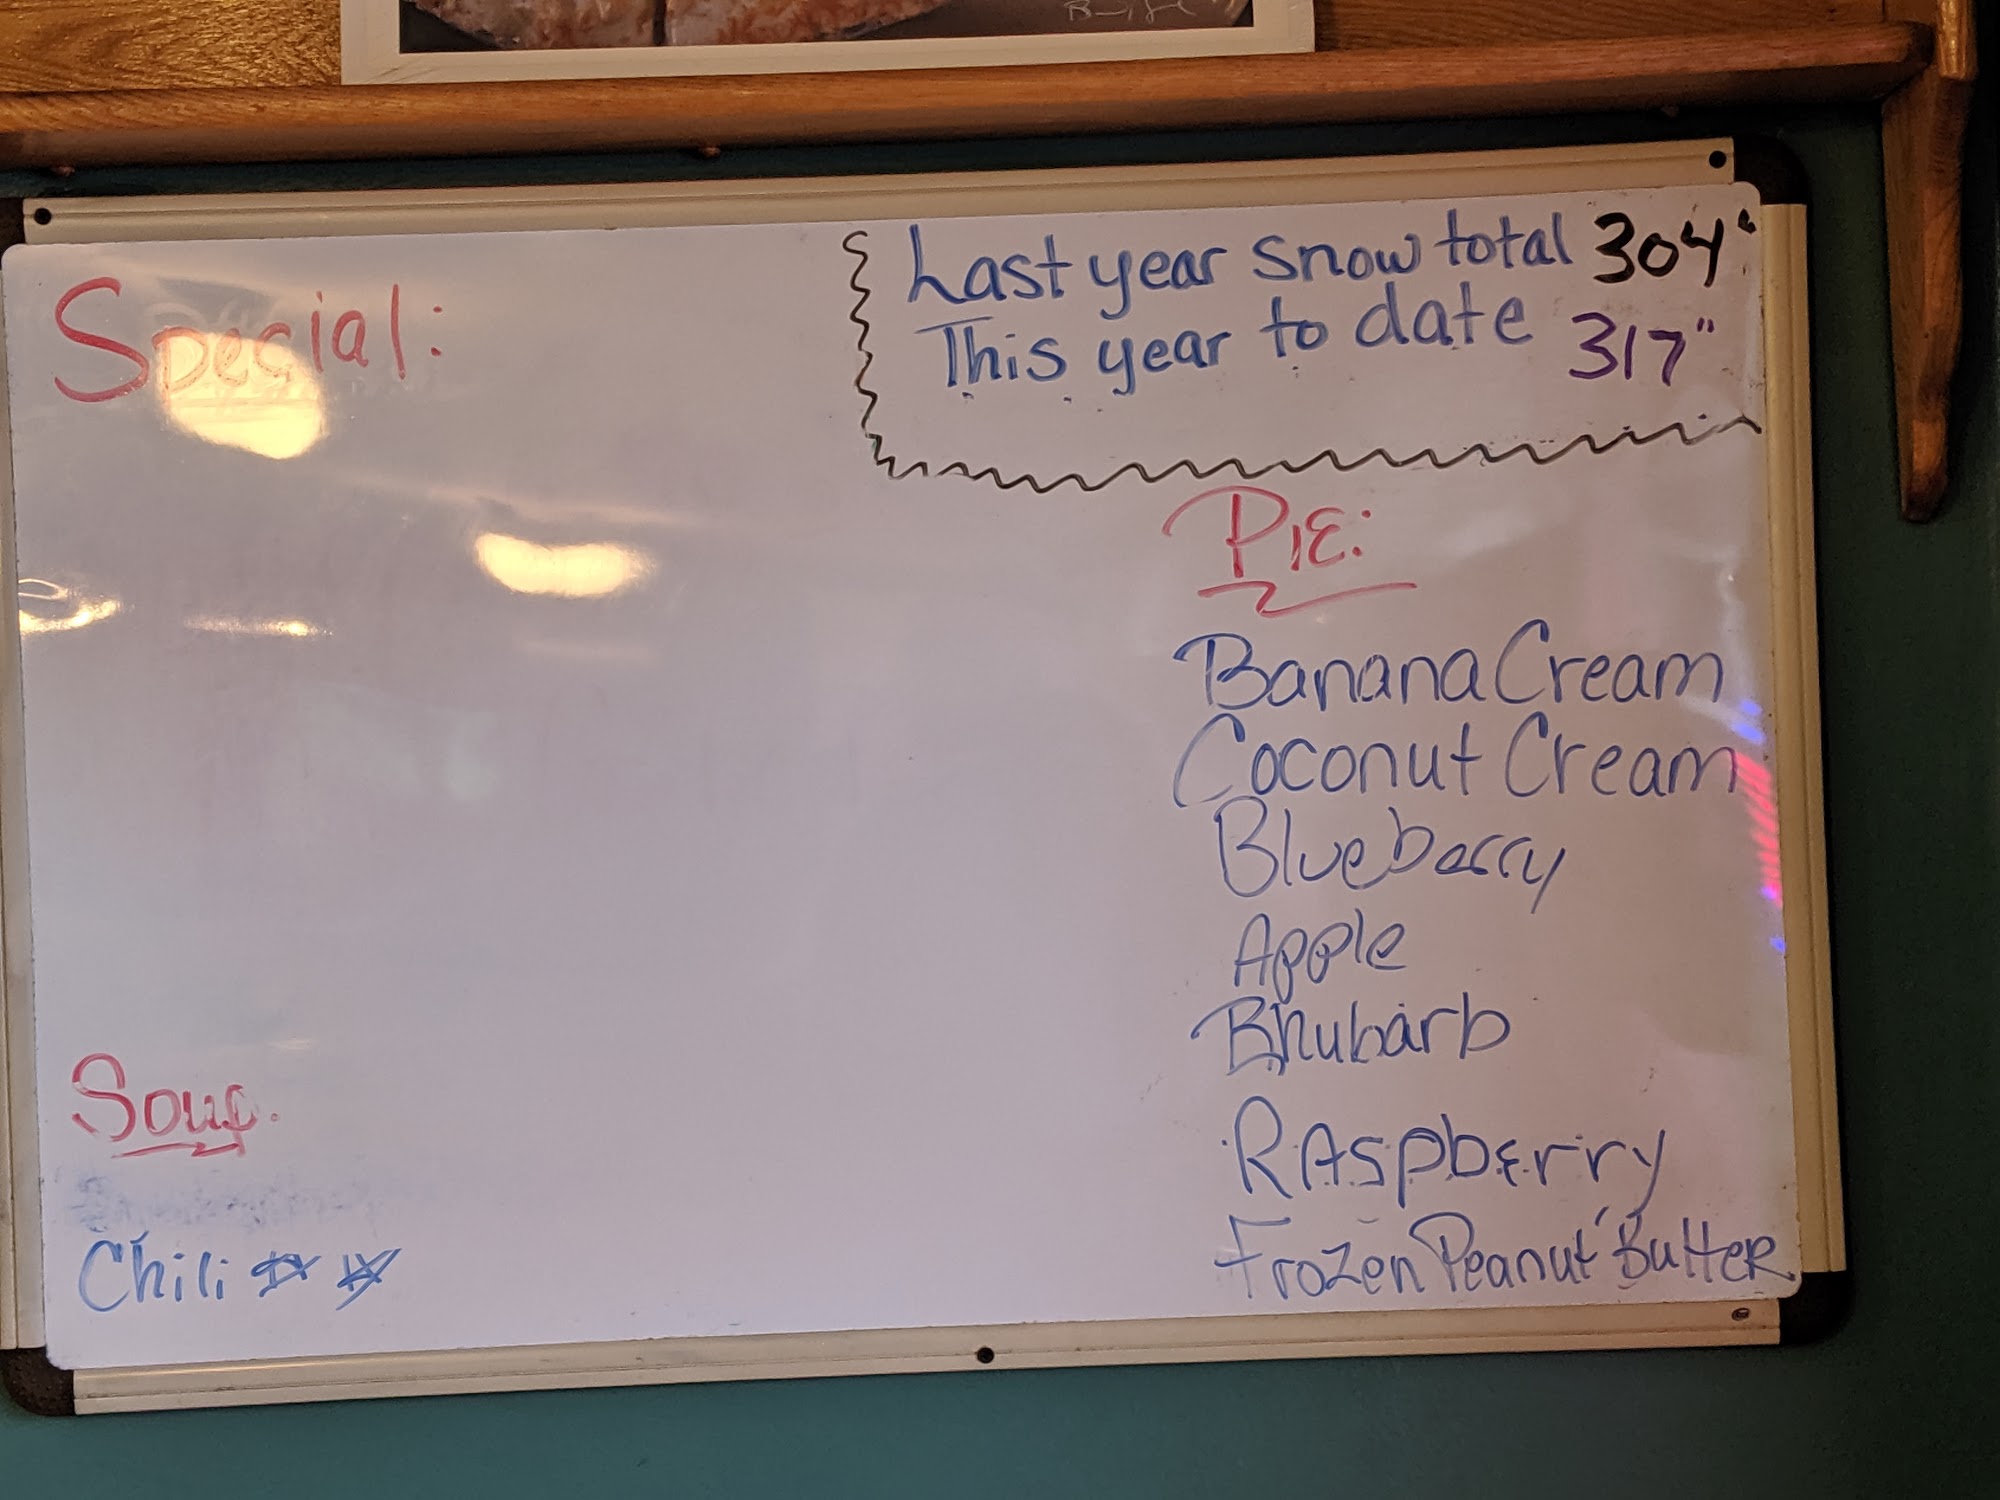 Special:
Last year snow total 304"
This year to date 317"
Pie:
Banana Cream
Coconut Cream
Blueberry
Apple
Rhubarb
Raspberry
Frozen Peanut Butter
Soup:
Chili